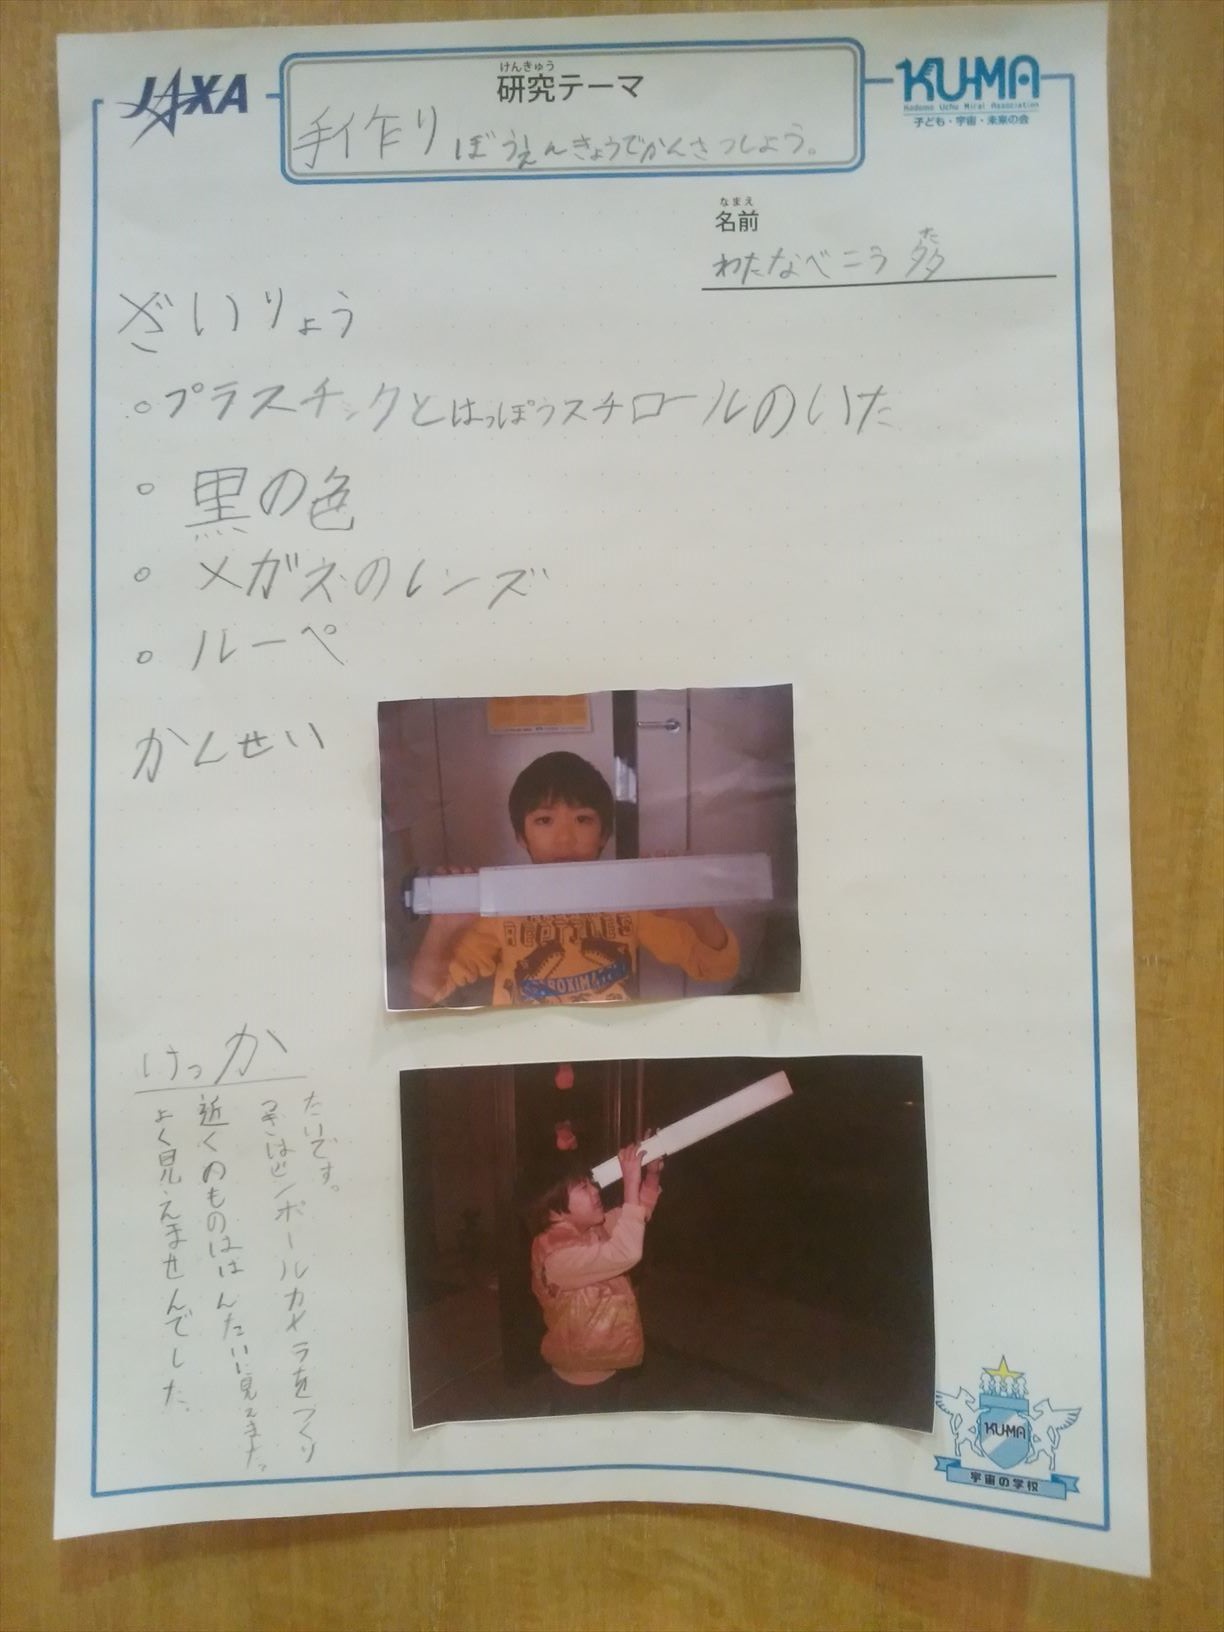 JAXA
けんきゅう
研究テーマ
手作りぼうえんきょうでかんさつしよう。
KU-MA
Kodomo Uchu Mirai Association
子ども・宇宙・未来の会
なまえ
名前
た
わたなべこう多
ざいりょう
○プラスチックとはっぽうスチロールのいた
○黒の色
○メガネのレンズ
○ルーペ
かんせい
けっか
よく見えませんでした。
近くのものははんたいに見えました。
つぎはピンホールカメラをつくり
たいです。
KU-MA
宇宙の学校